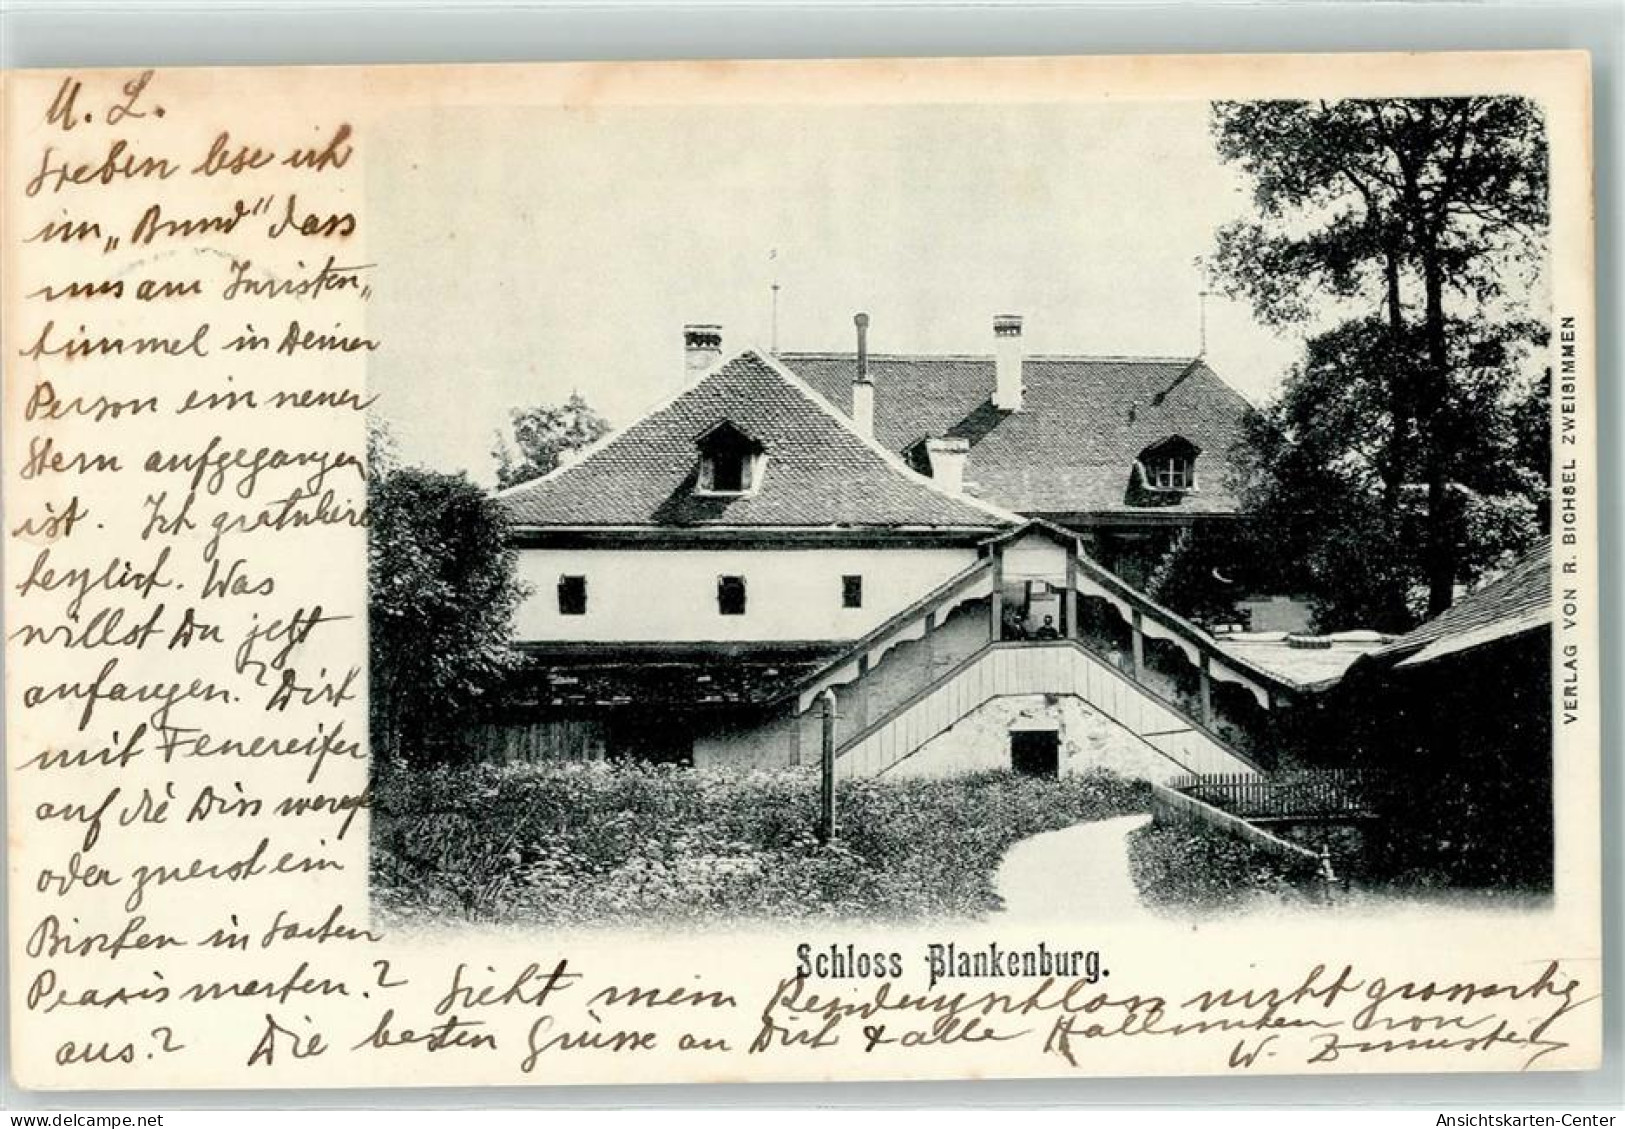 U. L.
Soeben lese ich
im „Bund" dass
uns am Juristen„
himmel in Deiner
Person ein neuer
Stern aufgegangen
ist. Ich gratuliere
herzlich. Was
willst Du jetzt
anfangen? Dich
mit Feuereifer
auf die Diss werfen
oder zuerst ein
Bisschen in Sachen
Praxis warten?
Sieht mein Residenzschloss nicht grossartig
aus? Die besten Grüsse an Dich & alle Hallunken von
W.
Schloss Blankenburg.
VERLAG VON R. BICHSEL ZWEISIMMEN
Ansichtskarten-Center